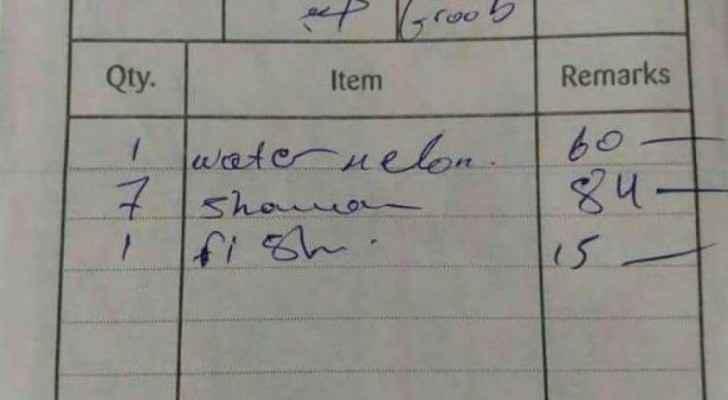 Groob
Qty. Item Remarks
1 water melon. 60 —
7 84 —
1 fish. 15 —